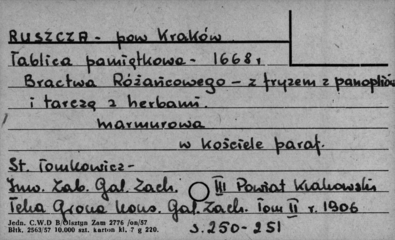 RUSZCZA - pow Kraków
Tablica pamiątkowa - 1668 r
Bractwa Różańcowego - z fryzem z panopliów
i tarczą z herbami.
marmurowa
w kościele paraf.
St. Tomkowicz -
Inw. Zab. Gal. Zach. III Powiat Krakowski
Teka Grona Kons. Gal. Zach. Tom II r. 1906
s. 250 - 251
Jedn. C.W.D B/Olsztyn Zam 2776 /on/57
Bltk. 2563/57 10.000 szt. karton kl. 7 g 220.